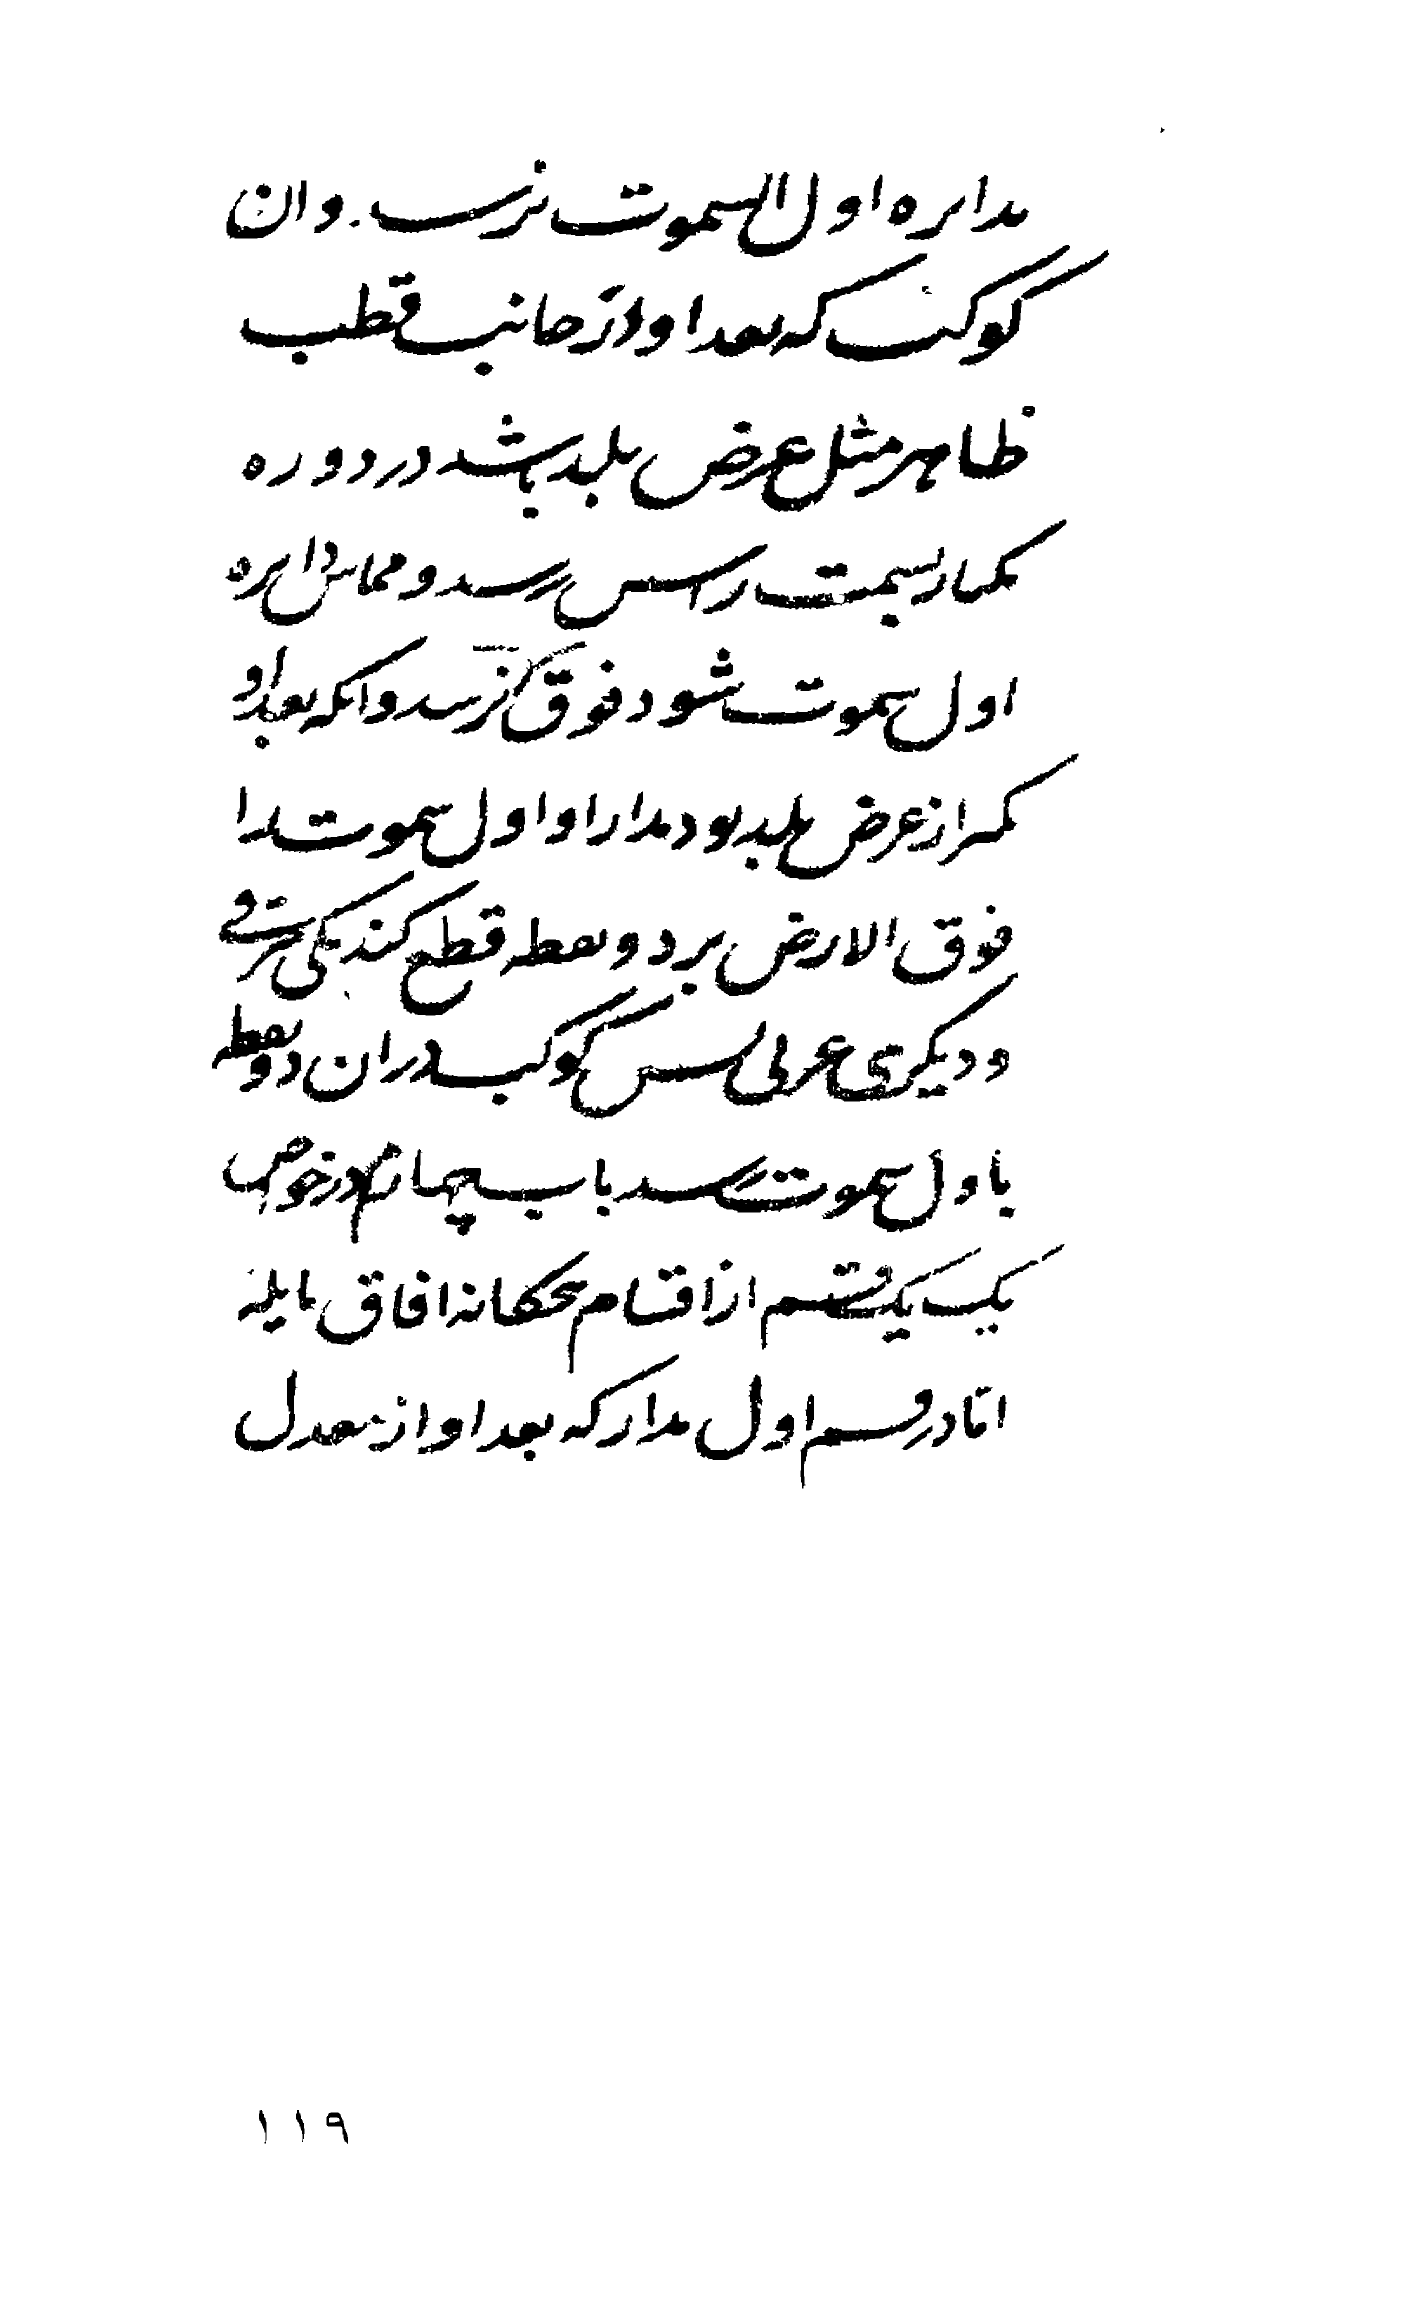 بدایره اول السموت نرسد. وان
کوکب که بعد او از جانب قطب
ظاهر مثل عرض بلد باشد در دوره
یکبار بسمت راس رسد و مماس دایره
اول سموت شود و فوق نرسد وانکه بعد او
کمتر از عرض بلد بود مدار او اول سموت را
فوق الارض بر دو نقطه قطع کند یکی شرقی
و دیگری غربی پس کوکب در ان دو نقطه
باول سموت رسد باب چهارم در خواص
یک یک قسم از اقسام پنجکانه افاق مایله
اما در قسم اول مدار که بعد او از معدل
۱۱۹